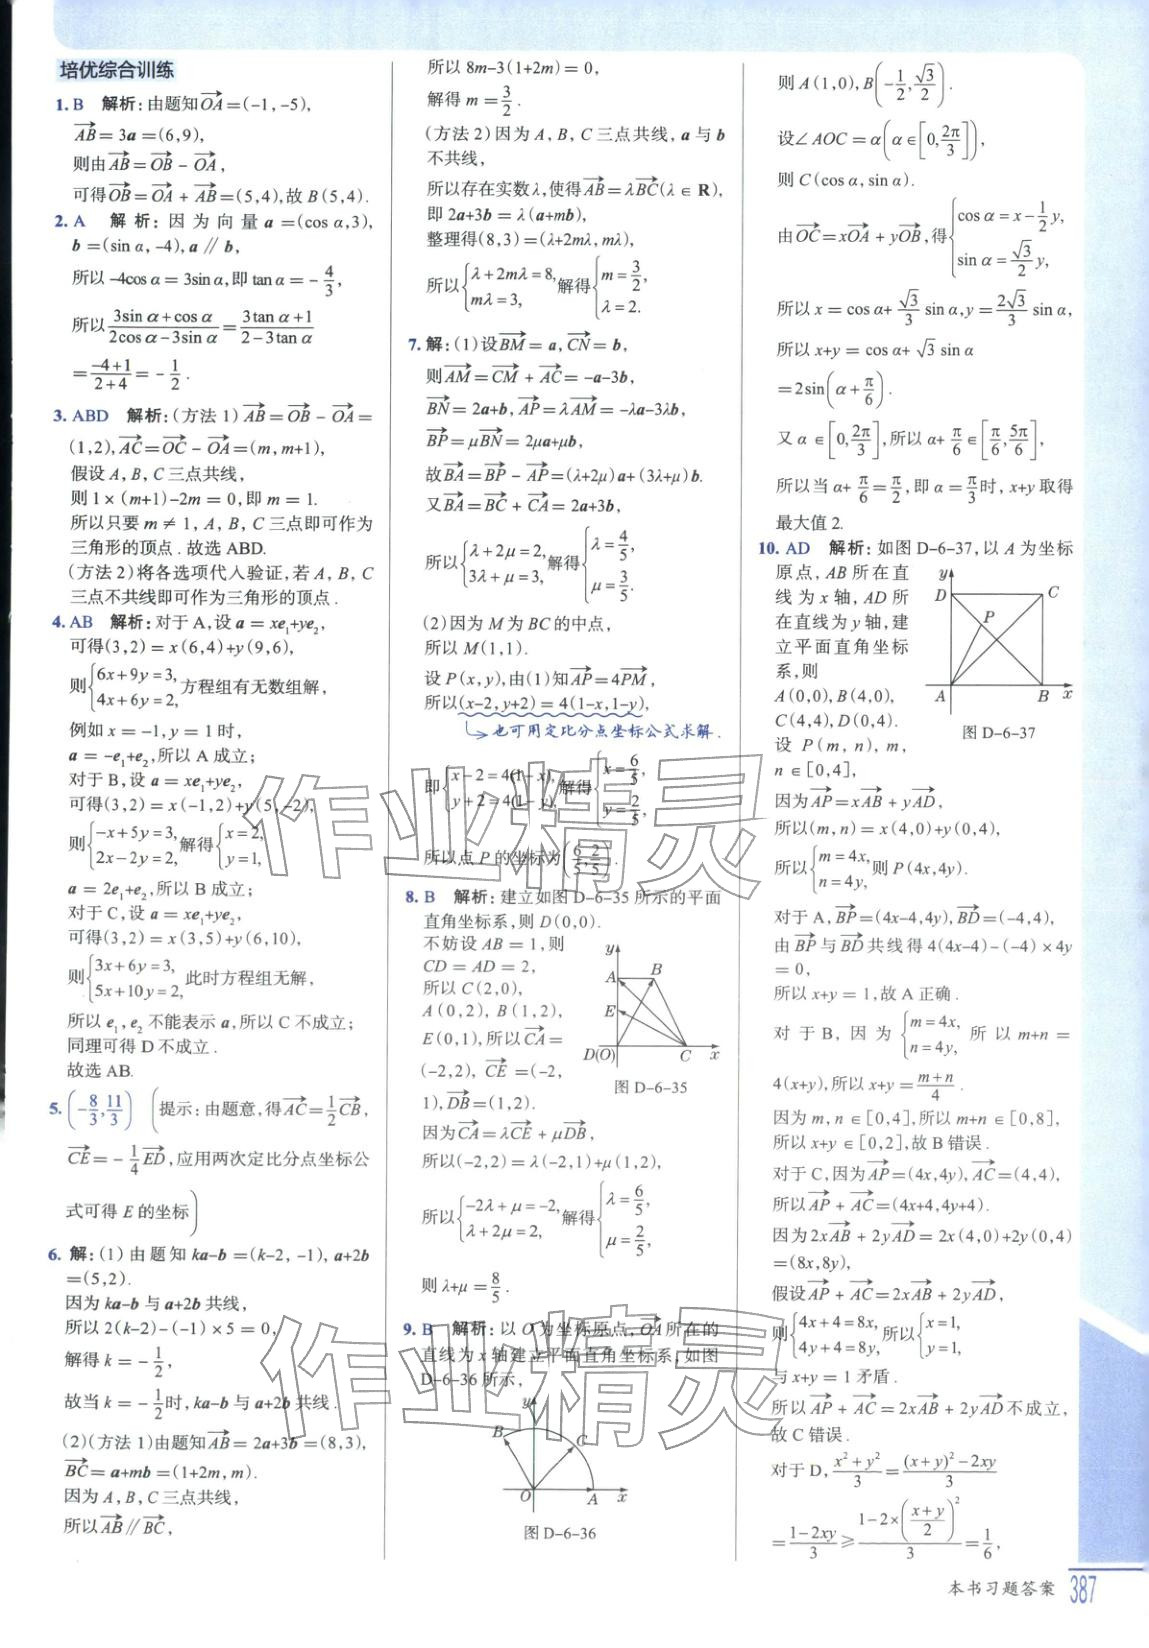 培优综合训练
1. B 解析:由题知OA→=(-1,-5),
AB→=3a=(6,9),
则由AB→=OB→-OA→,
可得OB→=OA→+AB→=(5,4),故B(5,4).
2. A 解析:因为向量a=(cos α,3),
b=(sin α,-4),a∥b,
所以-4cos α=3sin α,即tan α=-4/3,
所以(3sin α+cos α)/(2cos α-3sin α)=(3tan α+1)/(2-3tan α)
=(-4+1)/(2+4)=-1/2.
3. ABD 解析:(方法1)AB→=OB→-OA→=
(1,2),AC→=OC→-OA→=(m,m+1),
假设A,B,C三点共线,
则1×(m+1)-2m=0,即m=1.
所以只要m≠1,A,B,C三点即可作为
三角形的顶点.故选ABD.
(方法2)将各选项代入验证,若A,B,C
三点不共线即可作为三角形的顶点.
4. AB 解析:对于A,设a=xe₁+ye₂,
可得(3,2)=x(6,4)+y(9,6),
则{6x+9y=3, 4x+6y=2,方程组有无数组解,
例如x=-1,y=1时,
a=-e₁+e₂,所以A成立;
对于B,设a=xe₁+ye₂,
可得(3,2)=x(-1,2)+y(5,-2),
则{-x+5y=3, 2x-2y=2,解得{x=2, y=1,
a=2e₁+e₂,所以B成立;
对于C,设a=xe₁+ye₂,
可得(3,2)=x(3,5)+y(6,10),
则{3x+6y=3, 5x+10y=2,此时方程组无解,
所以e₁,e₂不能表示a,所以C不成立;
同理可得D不成立.
故选AB.
5. (-8/3,11/3) (提示:由题意,得AC→=1/2CB→,
CE→=-1/4ED→,应用两次定比分点坐标公
式可得E的坐标)
6. 解:(1)由题知ka-b=(k-2,-1),a+2b
=(5,2).
因为ka-b与a+2b共线,
所以2(k-2)-(-1)×5=0,
解得k=-1/2,
故当k=-1/2时,ka-b与a+2b共线.
(2)(方法1)由题知AB→=2a+3b=(8,3),
BC→=a+mb=(1+2m,m).
因为A,B,C三点共线,
所以AB→∥BC→,
所以8m-3(1+2m)=0,
解得m=3/2.
(方法2)因为A,B,C三点共线,a与b
不共线,
所以存在实数λ,使得AB→=λBC→(λ∈R),
即2a+3b=λ(a+mb),
整理得(8,3)=(λ+2mλ,mλ),
所以{λ+2mλ=8, mλ=3,解得{m=3/2, λ=2.
7. 解:(1)设BM→=a,CN→=b,
则AM→=CM→+AC→=-a-3b,
BN→=2a+b,AP→=λAM→=-λa-3λb,
BP→=μBN→=2μa+μb,
故BA→=BP→-AP→=(λ+2μ)a+(3λ+μ)b.
又BA→=BC→+CA→=2a+3b,
所以{λ+2μ=2, 3λ+μ=3,解得{λ=4/5, μ=3/5.
(2)因为M为BC的中点,
所以M(1,1).
设P(x,y),由(1)知AP→=4PM→,
所以(x-2,y+2)=4(1-x,1-y),
也可用定比分点坐标公式求解.
即{x-2=4(1-x), y+2=4(1-y),解得{x=6/5, y=2/5,
所以点P的坐标为(6/5,2/5).
8. B 解析:建立如图D-6-35所示的平面
直角坐标系,则D(0,0).
不妨设AB=1,则
CD=AD=2,
所以C(2,0),
A(0,2),B(1,2),
E(0,1),所以CA→=
(-2,2),CE→=(-2,
1),DB→=(1,2).
y
A
B
E
D(O)
C
x
图D-6-35
因为CA→=λCE→+μDB→,
所以(-2,2)=λ(-2,1)+μ(1,2),
所以{-2λ+μ=-2, λ+2μ=2,解得{λ=6/5, μ=2/5,
则λ+μ=8/5.
9. B 解析:以O为坐标原点,OA→所在的
直线为x轴建立平面直角坐标系,如图
D-6-36所示,
y
B
C
O
A
x
图D-6-36
则A(1,0),B(-1/2,√3/2).
设∠AOC=α(α∈[0,2π/3]),
则C(cos α,sin α).
由OC→=xOA→+yOB→,得{cos α=x-1/2y, sin α=√3/2y,
所以x=cos α+√3/3sin α,y=2√3/3sin α,
所以x+y=cos α+√3sin α
=2sin(α+π/6).
又α∈[0,2π/3],所以α+π/6∈[π/6,5π/6],
所以当α+π/6=π/2,即α=π/3时,x+y取得
最大值2.
10. AD 解析:如图D-6-37,以A为坐标
原点,AB所在直
线为x轴,AD所
在直线为y轴,建
立平面直角坐标
系,则
A(0,0),B(4,0),
C(4,4),D(0,4).
y
D
C
P
A
B
x
图D-6-37
设P(m,n),m,
n∈[0,4],
因为AP→=xAB→+yAD→,
所以(m,n)=x(4,0)+y(0,4),
所以{m=4x, n=4y,则P(4x,4y).
对于A,BP→=(4x-4,4y),BD→=(-4,4),
由BP→与BD→共线得4(4x-4)-(-4)×4y
=0,
所以x+y=1,故A正确.
对于B,因为{m=4x, n=4y,所以m+n=
4(x+y),所以x+y=(m+n)/4.
因为m,n∈[0,4],所以m+n∈[0,8],
所以x+y∈[0,2],故B错误.
对于C,因为AP→=(4x,4y),AC→=(4,4),
所以AP→+AC→=(4x+4,4y+4).
因为2xAB→+2yAD→=2x(4,0)+2y(0,4)
=(8x,8y),
假设AP→+AC→=2xAB→+2yAD→,
则{4x+4=8x, 4y+4=8y,所以{x=1, y=1,
与x+y=1矛盾.
所以AP→+AC→=2xAB→+2yAD→不成立,
故C错误.
对于D,(x²+y²)/3=((x+y)²-2xy)/3
=(1-2xy)/3≥(1-2×((x+y)/2)²)/3=1/6,
本书习题答案 387
作业精灵
作业精灵